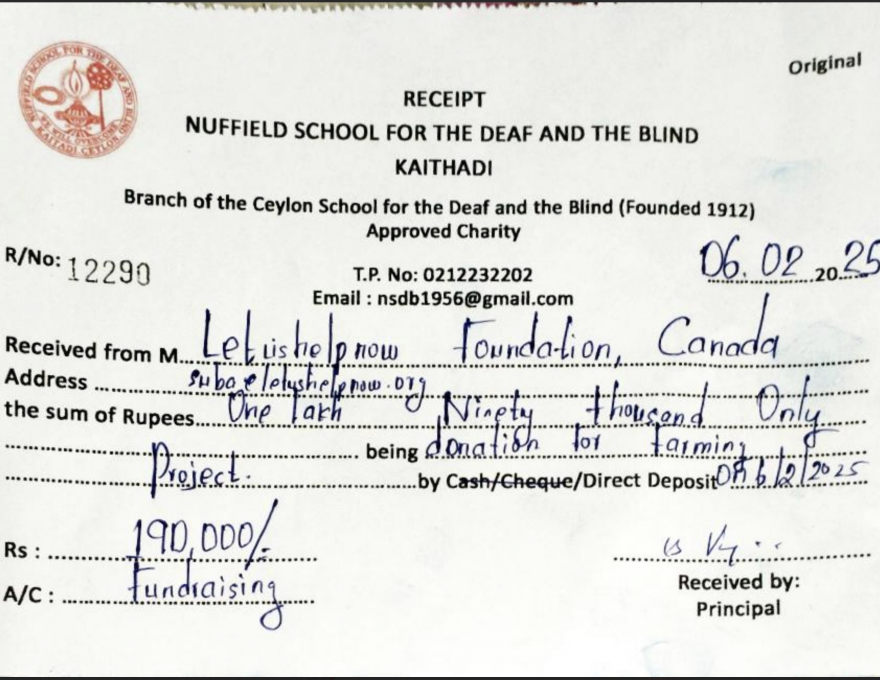 Original
NUFFIELD SCHOOL FOR THE DEAF AND BLIND
KAITADI CEYLON
RECEIPT
NUFFIELD SCHOOL FOR THE DEAF AND THE BLIND
KAITHADI
Branch of the Ceylon School for the Deaf and the Blind (Founded 1912)
Approved Charity
R/No: 12290
06.02.2025
T.P. No: 0212232202
Email : nsdb1956@gmail.com
Received from M Letushelpnow Foundation, Canada
Address suba@letushelpnow.org
the sum of Rupees One lakh Ninety thousand Only
being donation for farming
Project. by Cash/Cheque/Direct Deposit 6/2/2025
Rs : 190,000/-
A/C : Fundraising
Received by:
Principal